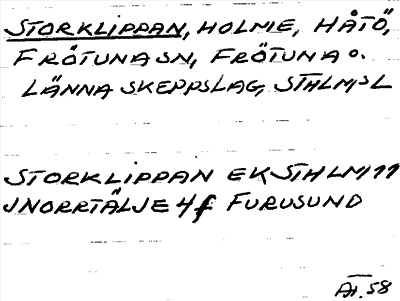 STORKLIPPAN, HOLME, HÅTÖ,
FRÖTUNA SN, FRÖTUNA O.
LÄNNA SKEPPSLAG, STHLM,S L
STORKLIPPAN EK STHLM 11
JNORRTÄLJE 4f FURUSUND
58